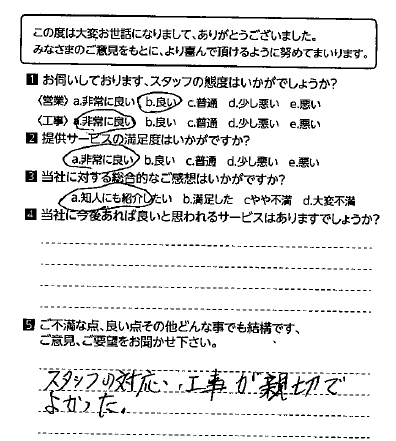 この度は大変お世話になりまして、ありがとうございました。
みなさまのご意見をもとに、より喜んで頂けるように努めてまいります。
1 お伺いしております、スタッフの態度はいかがでしょうか?
〈営業〉 a.非常に良い b.良い c.普通 d.少し悪い e.悪い
〈工事〉 a.非常に良い b.良い c.普通 d.少し悪い e.悪い
2 提供サービスの満足度はいかがですか?
a.非常に良い b.良い c.普通 d.少し悪い e.悪い
3 当社に対する総合的なご感想はいかがですか?
a.知人にも紹介したい b.満足した cやや不満 d.大変不満
4 当社に今後あれば良いと思われるサービスはありますでしょうか?
5 ご不満な点、良い点その他どんな事でも結構です、
ご意見、ご要望をお聞かせ下さい。
スタッフの対応、工事が親切で
よかった。